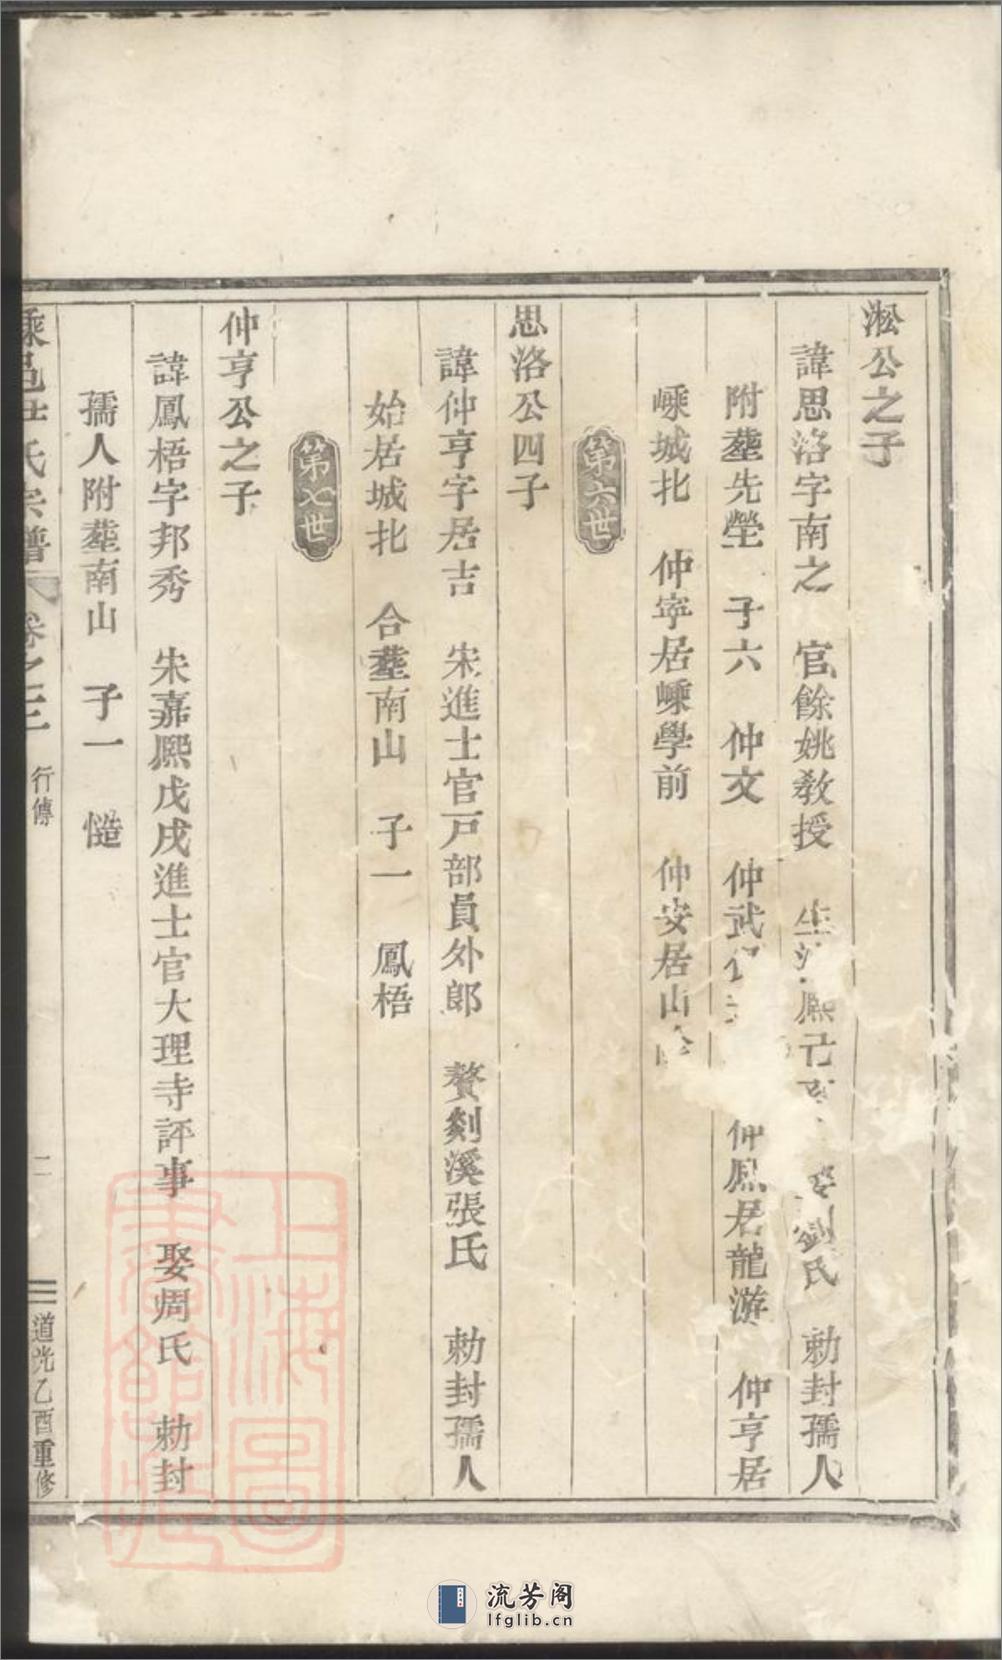 淞公之子
諱思洛字南之 官餘姚教授 生 熙 劉氏 勅封孺人
附塟先塋 子六 仲文 仲武 仲鳳居龍游 仲亨居
嵊城北 仲寧居嵊學前 仲安居山
第六世
思洛公四子
諱仲亨字居吉 宋進士官戸部員外郎 贅剡溪張氏 勅封孺人
始居城北 合塟南山 子一 鳳梧
第七世
仲亨公之子
諱鳳梧字邦秀 宋嘉熙戊戌進士官大理寺評事 娶周氏 勅封
孺人附塟南山 子一 慥
氏宗譜 卷之三 行傳 二 道光乙酉重修
上海圖書館藏
流芳阁
lfglib.cn